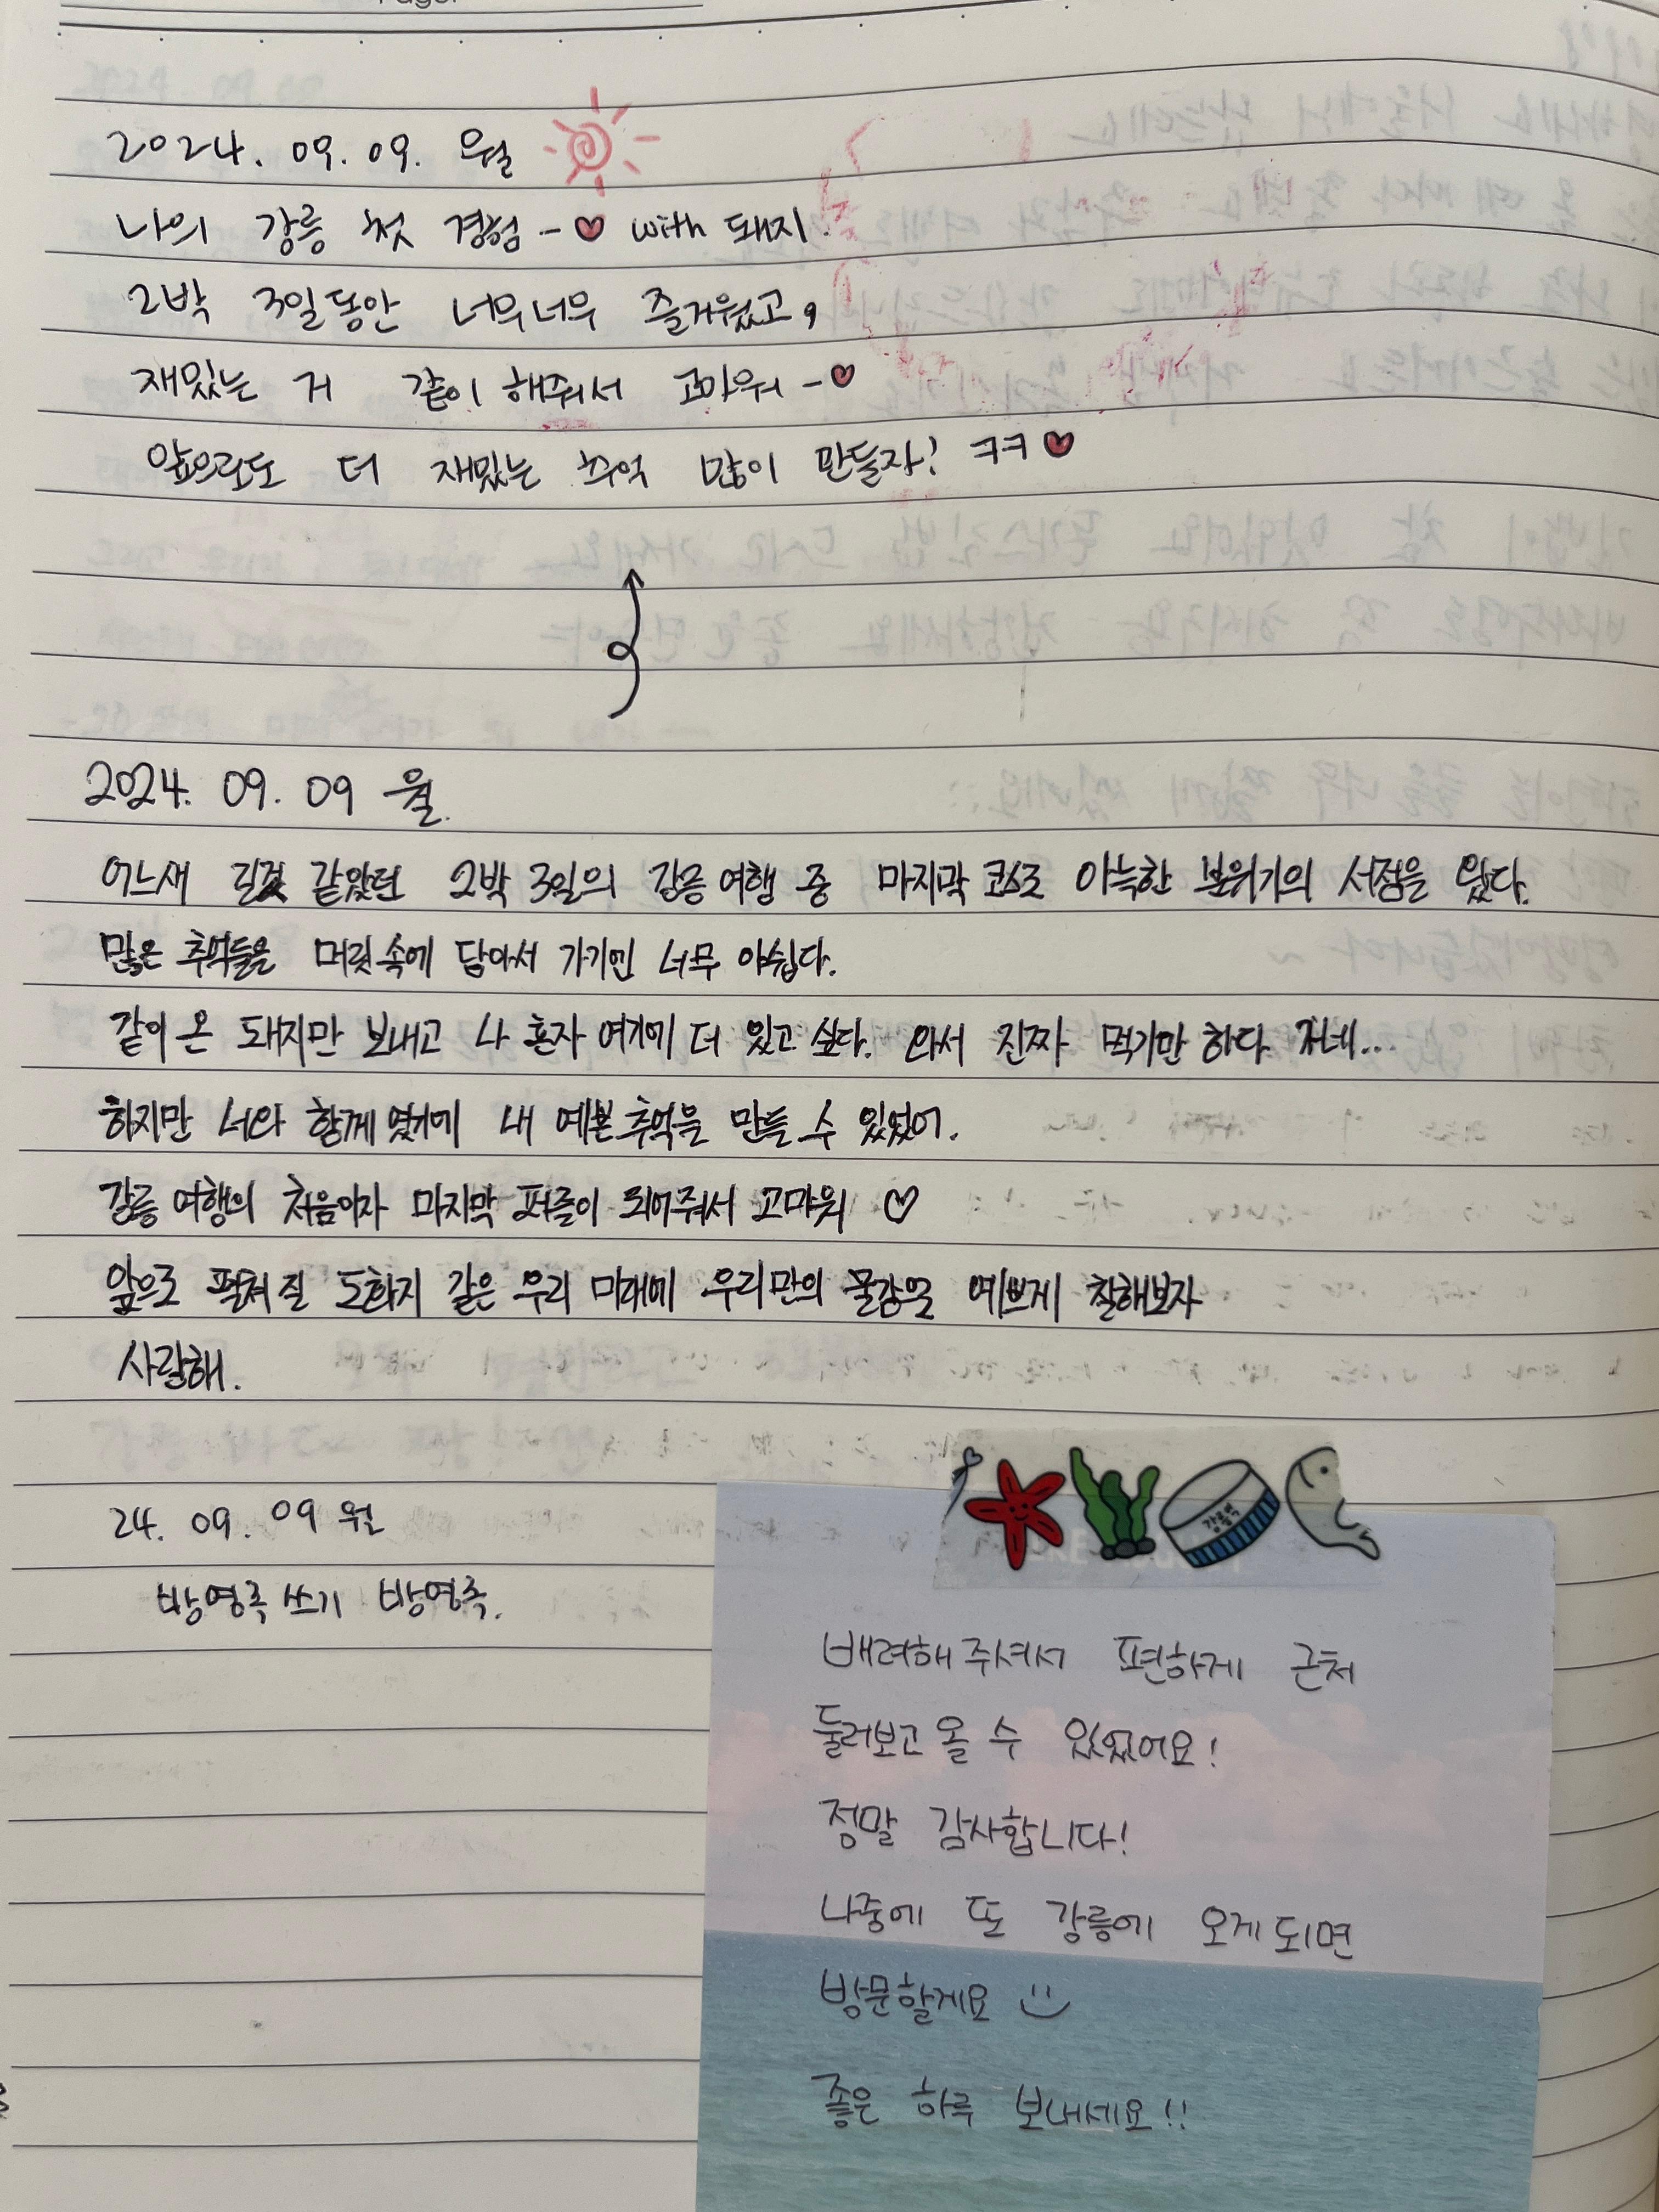 2024. 09. 09. 월
나의 강릉 첫 경험 - ♥ with 돼지
2박 3일동안 너무너무 즐거웠고,
재밌는 거 같이 해줘서 고마워 - ♥
앞으로도 더 재밌는 추억 많이 만들자! ㅋㅋ ♥
2024. 09. 09 월.
어느새 길것 같았던 2박 3일의 강릉여행 중 마지막 코스로 아늑한 분위기의 서점을 왔다.
많은 추억들을 머릿속에 담아서 가기엔 너무 아쉽다.
같이 온 돼지만 보내고 나 혼자 여기에 더 있고 싶다. 와서 진짜 먹기만 하다 가네...
하지만 너와 함께였기에 내 예쁜 추억을 만들 수 있었어.
강릉 여행의 처음이자 마지막 퍼즐이 되어줘서 고마워 ♡
앞으로 펼쳐질 도화지 같은 우리 미래에 우리만의 물감을 예쁘게 칠해보자
사랑해.
24. 09. 09 월
방명록 쓰기 방명록.
강릉
배려해주셔서 편하게 근처
둘러보고 올 수 있었어요!
정말 감사합니다!
나중에 또 강릉에 오게되면
방문할게요
좋은 하루 보내세요!!